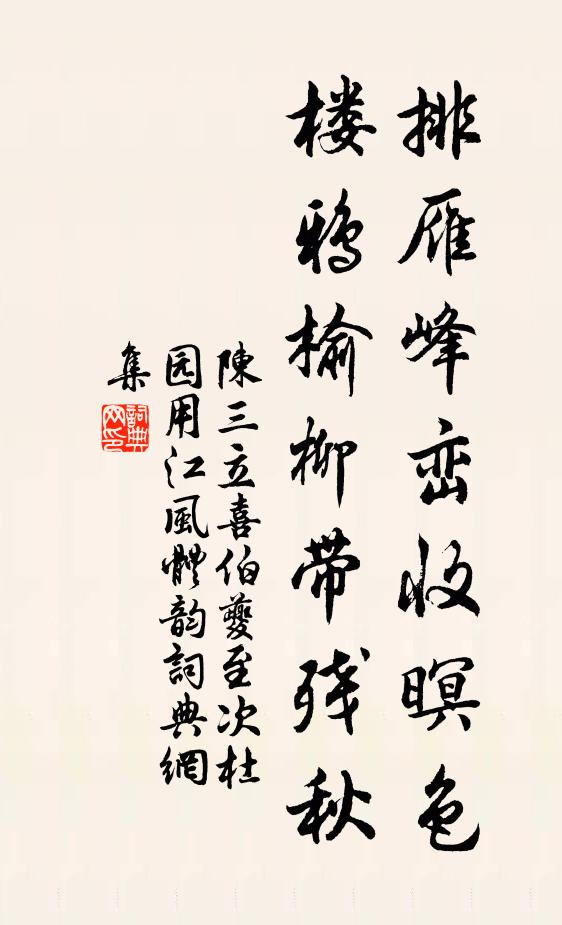 排雁峰峦收暝色
楼鸦榆柳带残秋
陳三立喜伯夔至次杜
园用江風體韵詞典網
集
詞典网印